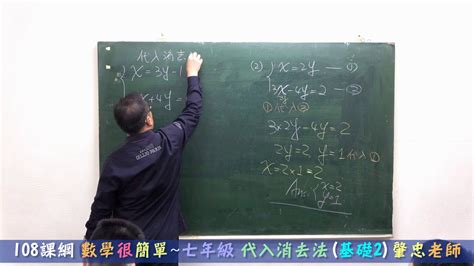 代入消去
x=3y-1
x+4y=
(2) x=2y —①
3x-4y=2 —②
2y
①代入②
3×2y-4y=2
2y=2, y=1代入①
x=2×1=2
Ans: x=2
y=1
108課綱 數學很簡單~七年級 代入消去法(基礎2) 肇忠老師